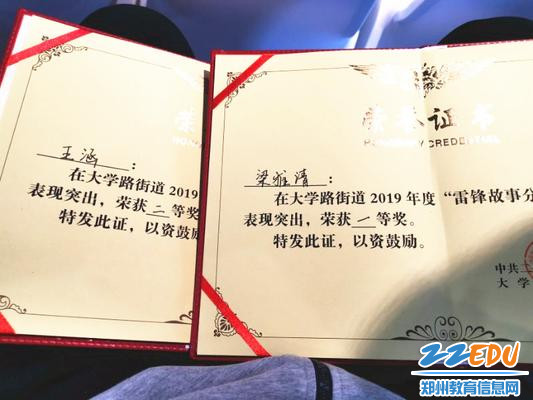 王涵：
在大学路街道2019
表现突出，荣获二等奖
特发此证，以资鼓励
荣誉证书
HONORARY CREDENTIAL
梁雅清：
在大学路街道2019年度“雷锋故事分
表现突出，荣获一等奖。
特发此证，以资鼓励。
中共二
大学
ZZEDU
郑州教育信息网